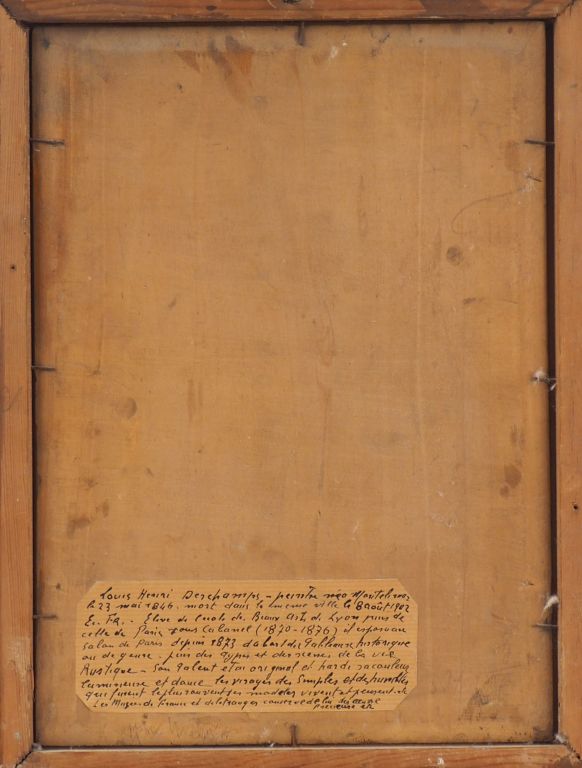 Louis Henri Deschamps - peintre né à Montelimar
le 23 mai 1846. mort dans la meme ville le 8 août 1902
Ec. FR. - Elève de l'ecole des Beaux Arts de Lyon puis de
celle de Paris sous Cabanel (1870-1876) il exposa au
salon de Paris depuis 1873 d'abord des Tableaux historique
ou de genre, puis des Types et des scenes de la vie
Rustique - Son Talent etai original et hardi sa couleur
lumineuse et dans les visages des Simples et des humbles
qui furent le plus souvent ses modeles vivent et pensent.
Les Musées de France et de l'etranger conserve de lui des œuvre